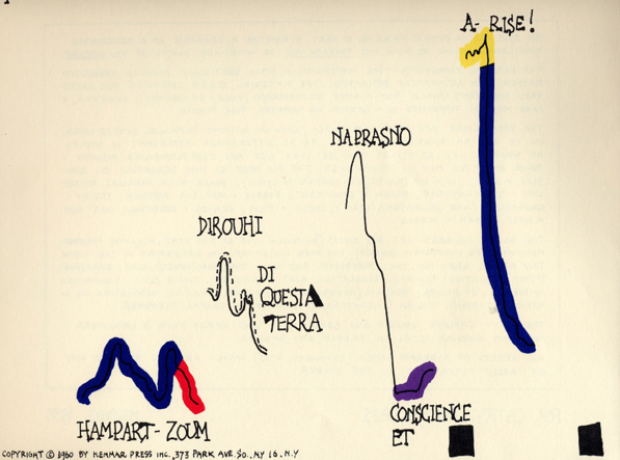 A- RISE!
NAPRASNO
DIROUHI
DI
QUESTA
TERRA
HAMPART - ZOUM
CONSCIENCE
ET
COPYRIGHT © 1960 BY HENMAR PRESS INC., 373 PARK AVE. SO., N.Y 16. N.Y